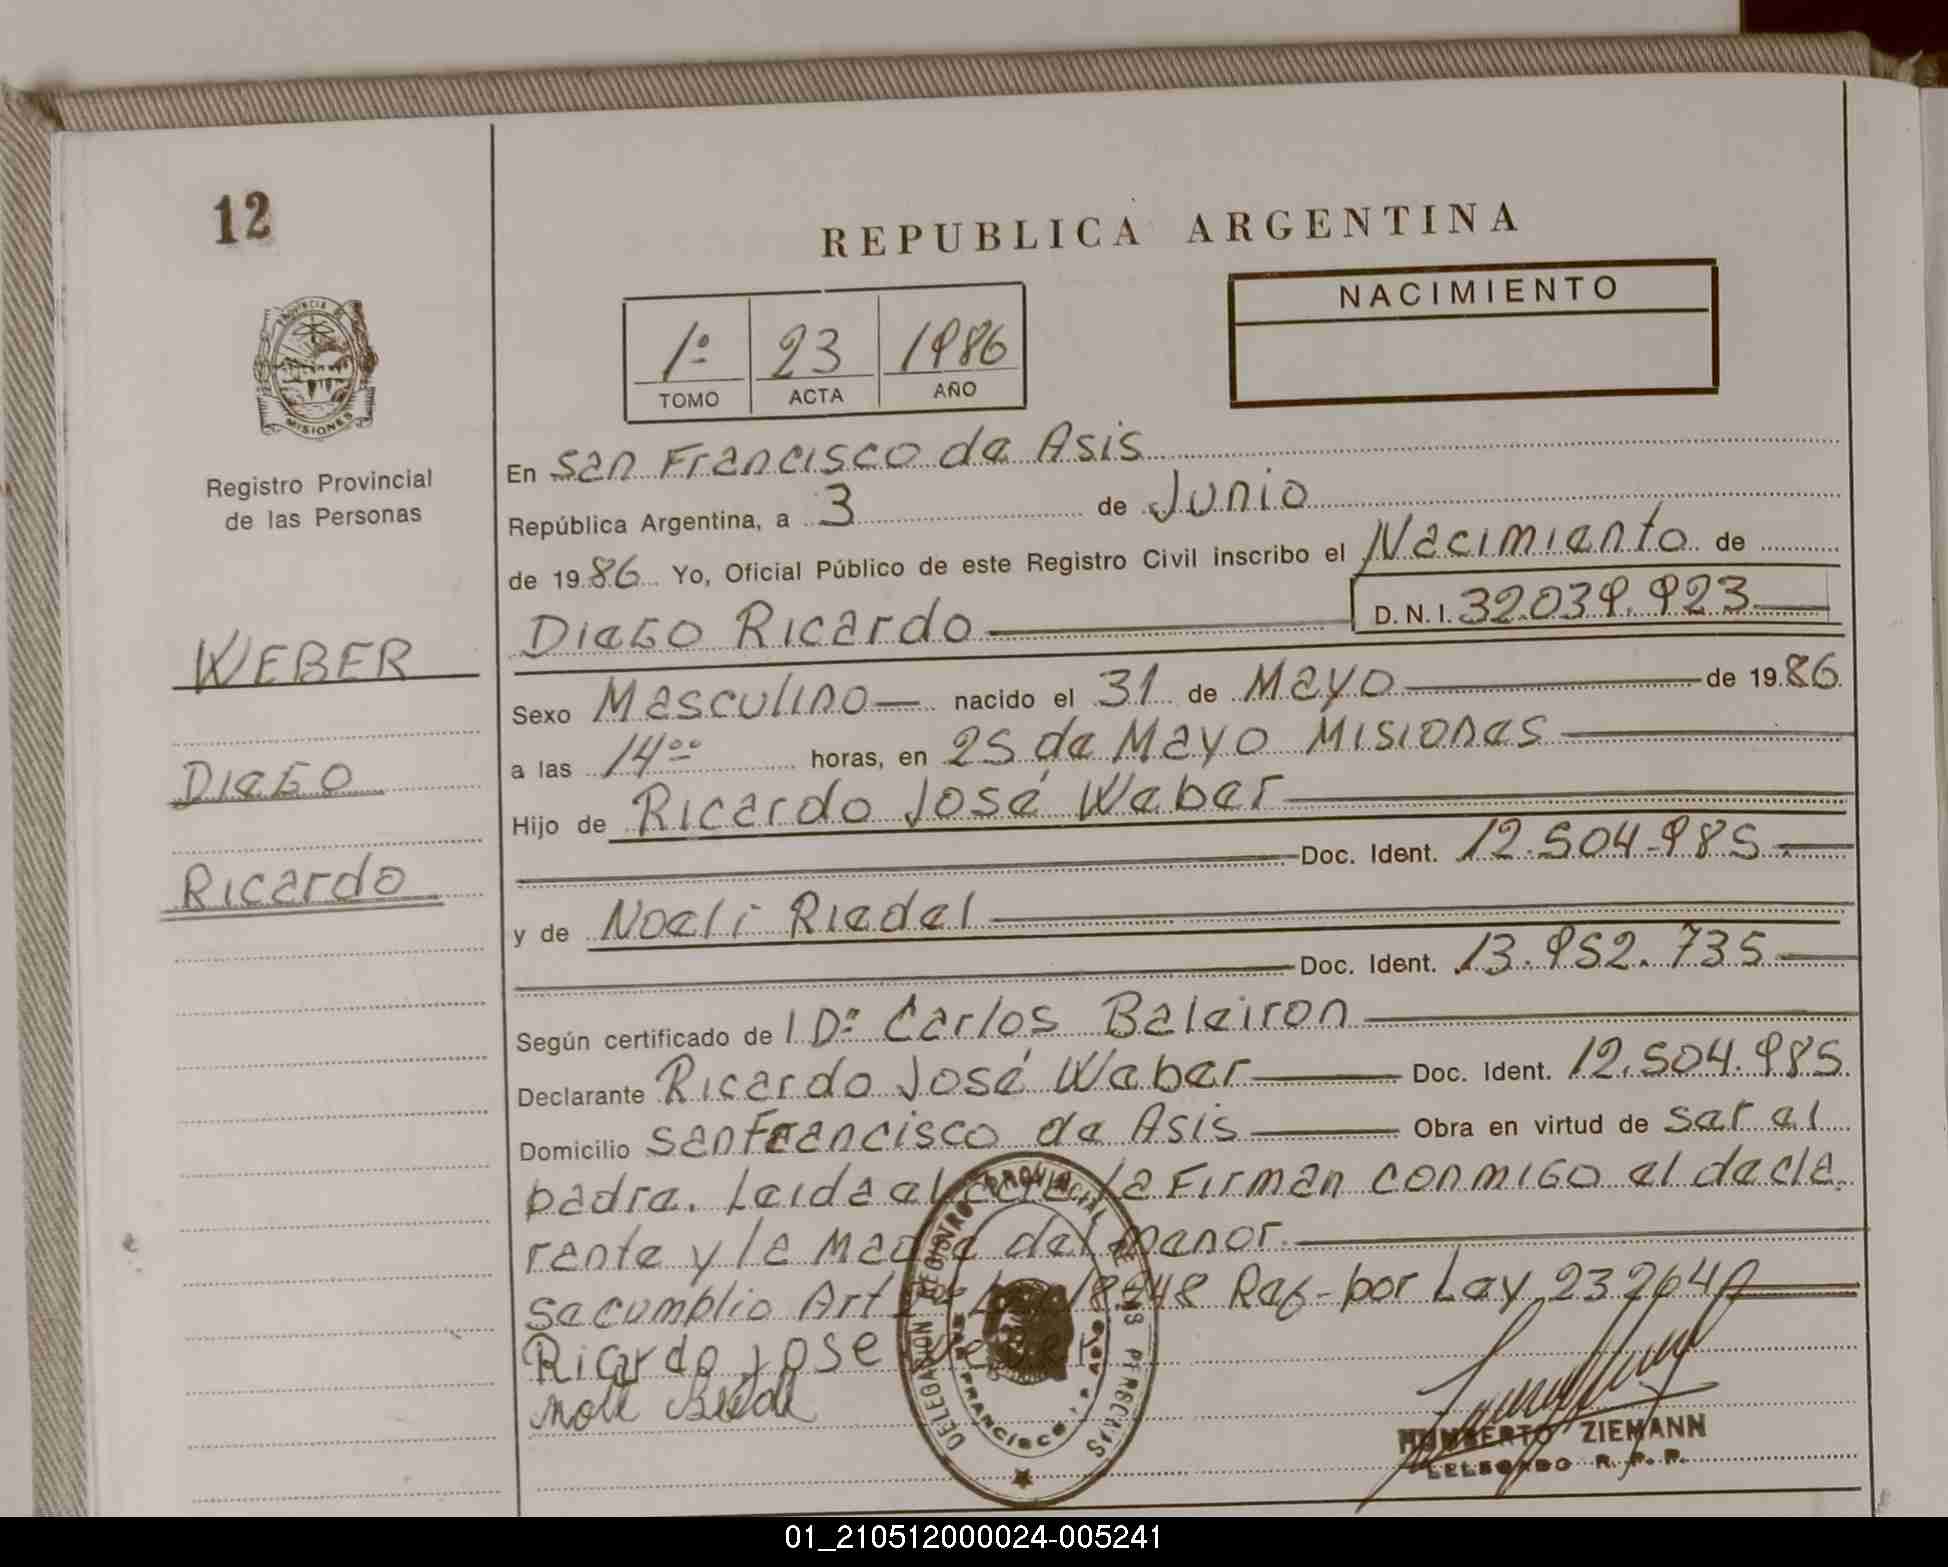 12
REPUBLICA ARGENTINA
NACIMIENTO
1º 23 1986
TOMO ACTA AÑO
PROVINCIA DE
MISIONES
Registro Provincial
de las Personas
WEBER
Diego
Ricardo
En San Francisco de Asis
República Argentina, a 3 de Junio
de 1986 Yo, Oficial Público de este Registro Civil inscribo el Nacimiento de
Diego Ricardo D. N. I. 32.039.923
Sexo Masculino nacido el 31 de Mayo de 1986
a las 14ºº horas, en 25 de Mayo Misiones
Hijo de Ricardo José Weber
Doc. Ident. 12.504.985
y de Noeli Riedel
Doc. Ident. 13.952.735
Según certificado de Dº Carlos Baleiron
Declarante Ricardo José Weber Doc. Ident. 12.504.985
Domicilio San Francisco de Asis Obra en virtud de ser el
padre. Leida el acta la Firman conmigo el decla-
rante y la Madre del menor.
se cumplio Art 18248 Ref-por Ley 23264
Ricardo Jose Weber
DELEGACION REGISTRO PROVINCIAL DE LAS PERSONAS
SAN FRANCISCO DE ASIS
HUMBERTO ZIEMANN
DELEGADO R. P. P.
01_210512000024-005241